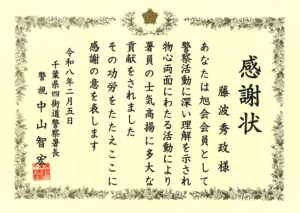 感謝状
藤波秀政様
あなたは旭会会員として
警察活動に深い理解を示され
物心両面にわたる活動により
署員の士気高揚に多大な
貢献をされました
その功労をたたえここに
感謝の意を表します
令和八年二月五日
千葉県四街道警察署長
警視 中山智宏